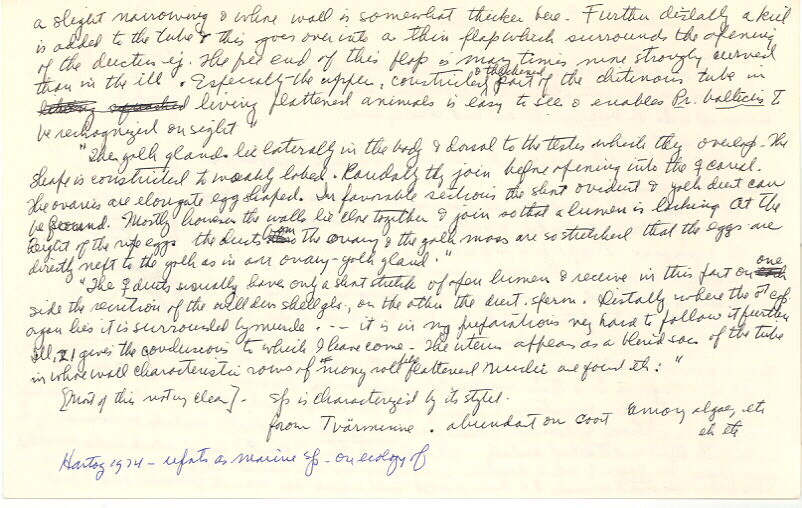 a slight narrowing & whose wall is somewhat thicker here. Further distally a keel
is added to the tube & this goes over into a thin flap which surrounds the opening
of the ductus ej. The free end of this flap is many times more strongly curved
than in the ill. Especially the upper, constricted & thickened part of the chitinous tube in
living flattened animals is easy to see & enables Pr. balticus to
be recognized on sight"
"The yolk glands lie laterally in the body & dorsal to the testes which they overlap. The
shape is constricted to weakly lobed. Caudally they join before opening into the ♀ canal.
The ovaries are elongate egg shaped. In favorable sections the short oviduct & yolk duct can
be found. Mostly however the walls lie close together & join so that a lumen is lacking. At the
height of the ripe eggs the ducts from the ovary & the yolk mass are so stretched that the eggs are
directly next to the yolk as in an ovary-yolk gland."
"The ♀ ducts usually have only a short stretch of open lumen & receive in this part on one
side the secretion of the well dev shell gls., on the other the duct. sperm. Distally where the ♂ cop
organ lies it is surrounded by muscle. -- it is in my preparations very hard to follow it further
ill. 21 gives the conclusions to which I have come. The uterus appears as a blind sac of the tube
in whose wall characteristic rows of "money roll" like flattened nuclei are found etc: "
[Most of this not vy clear]. sp is characterized by its stylet.
from Tvärminne. abundant on coast among algae, etc
etc etc
Hartog 1974 - reports as marine sp - on ecology of